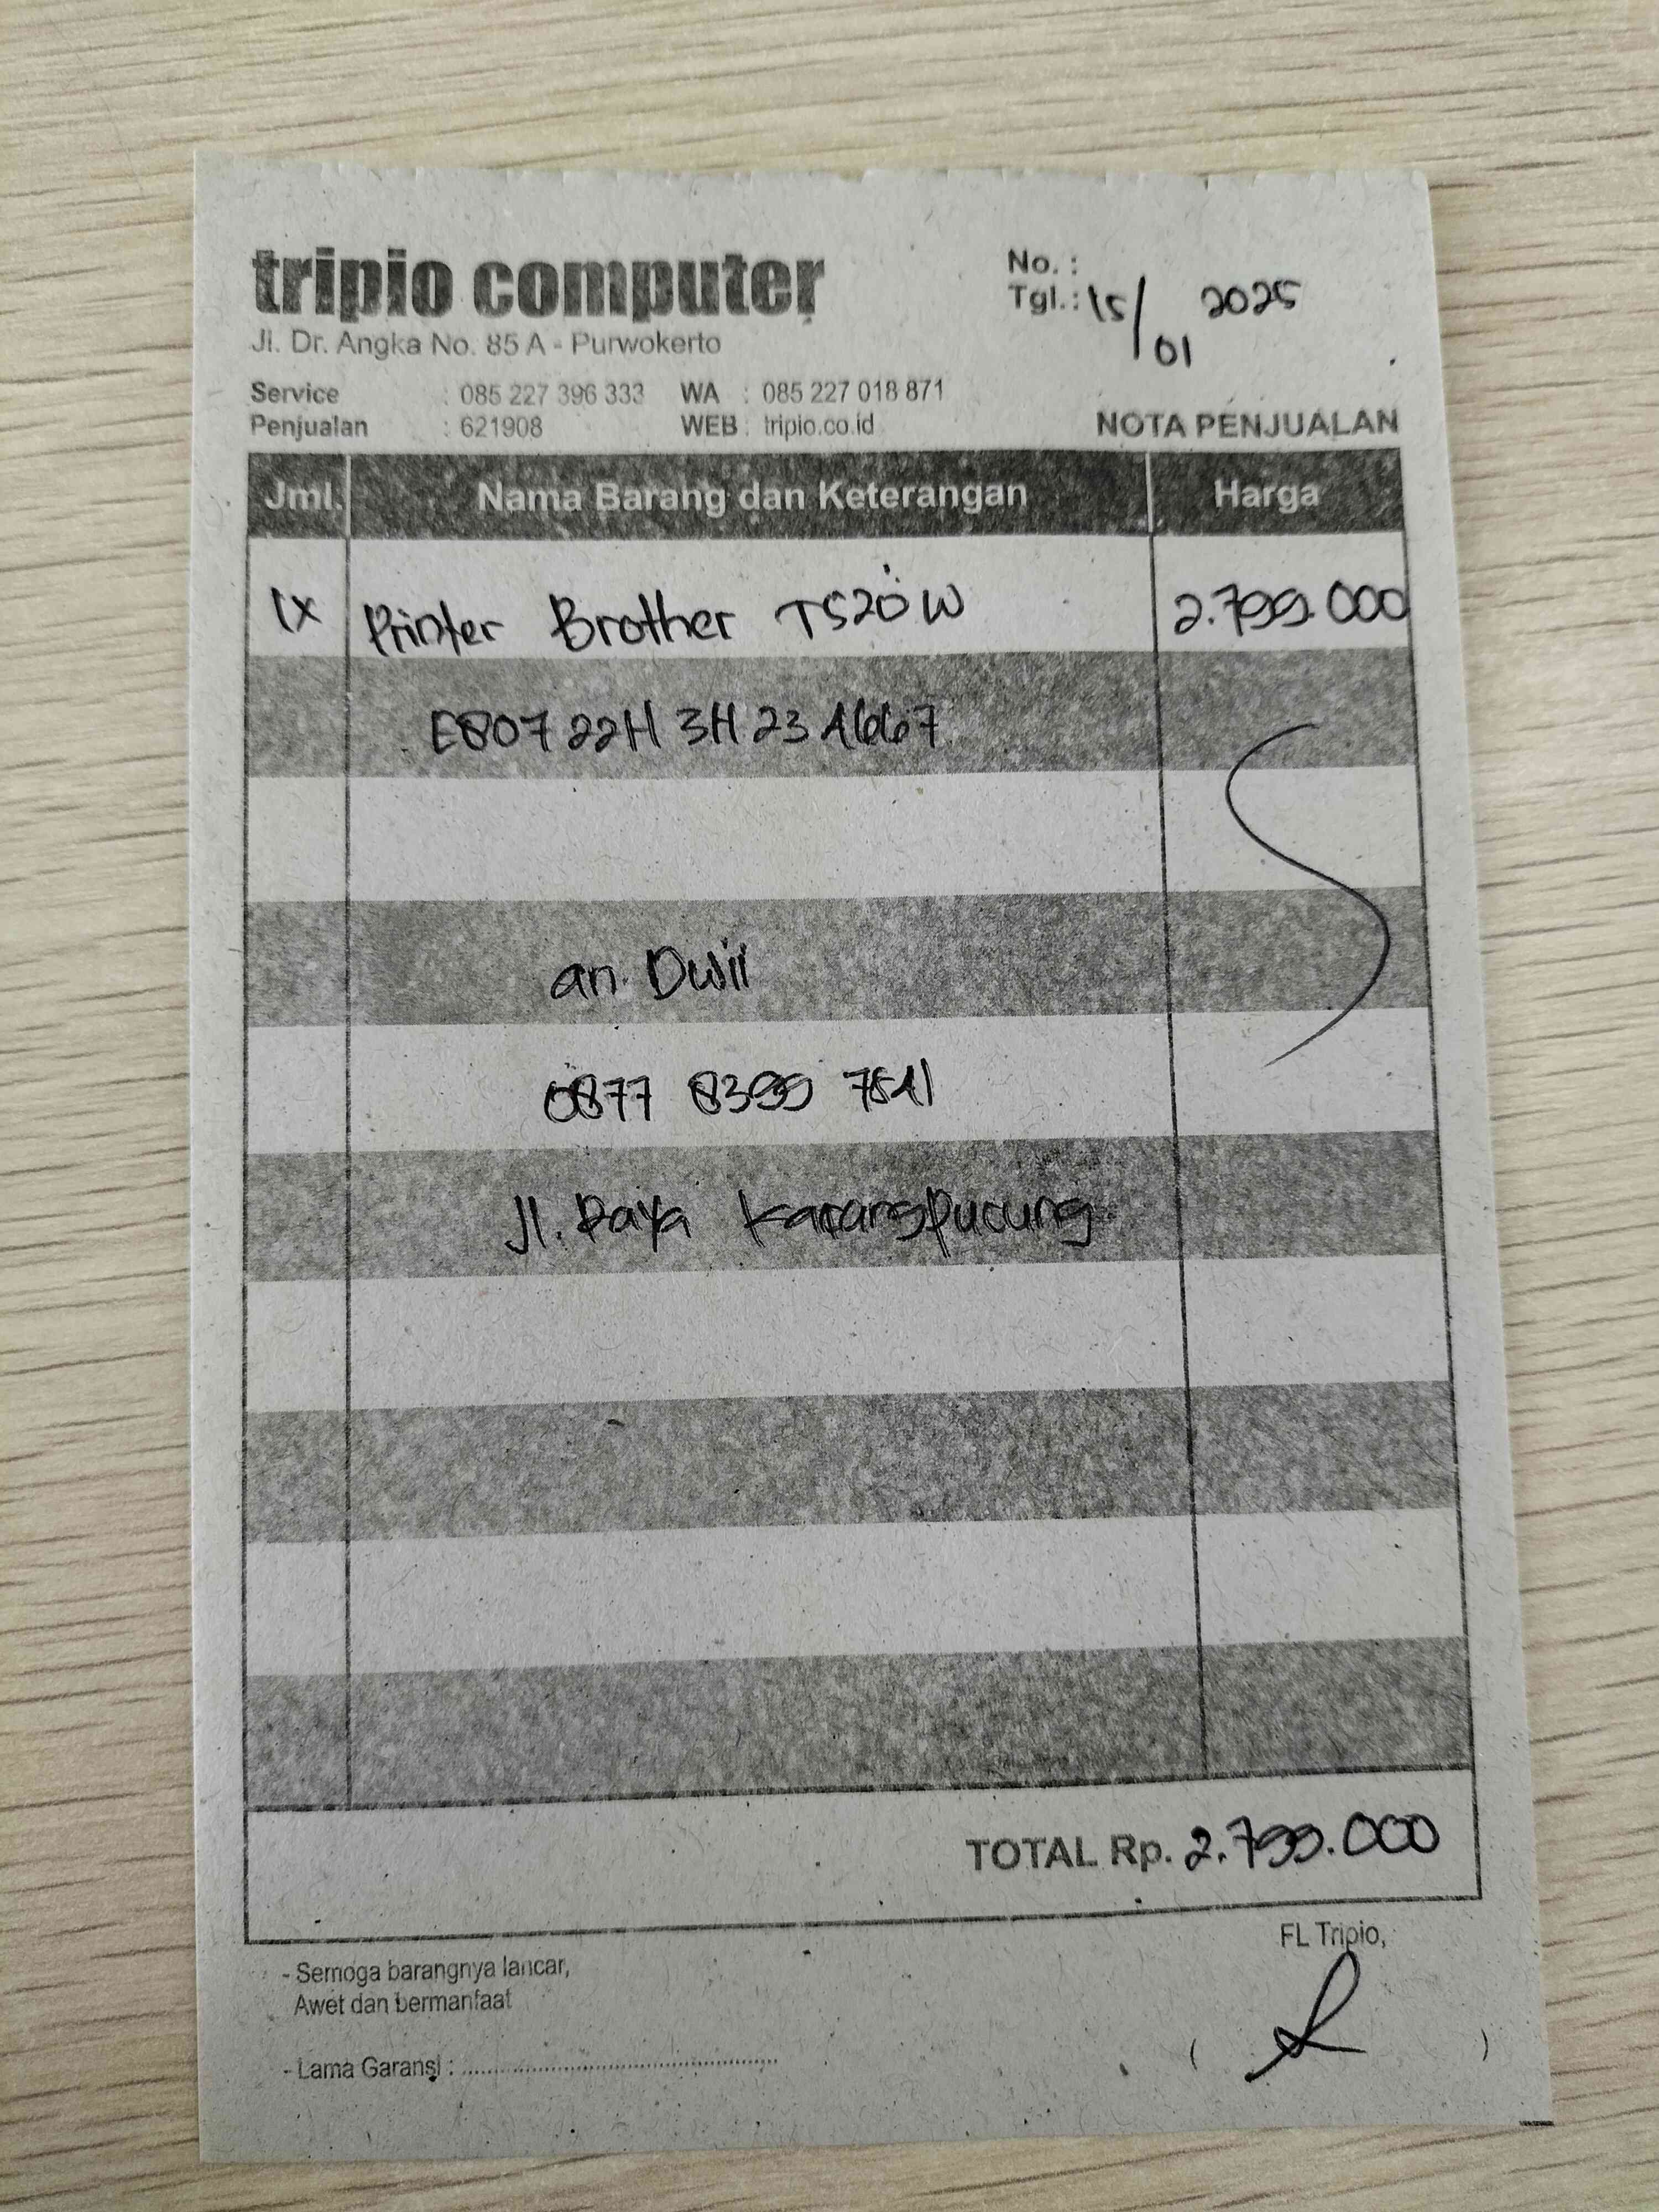 tripio computer
Jl. Dr. Angka No. 85 A - Purwokerto
No. :
Tgl. : 15/01 2025
Service : 085 227 396 333 WA : 085 227 018 871
Penjualan : 621908 WEB : tripio.co.id
NOTA PENJUALAN
Jml. Nama Barang dan Keterangan Harga
1x Printer Brother T520W 2.799.000
E80722H3H23A6667
an. Dwi
0877 8399 7841
Jl. Raya Karangpucung
TOTAL Rp. 2.799.000
FL Tripio,
- Semoga barangnya lancar,
Awet dan bermanfaat
- Lama Garansi : ..............................
( )